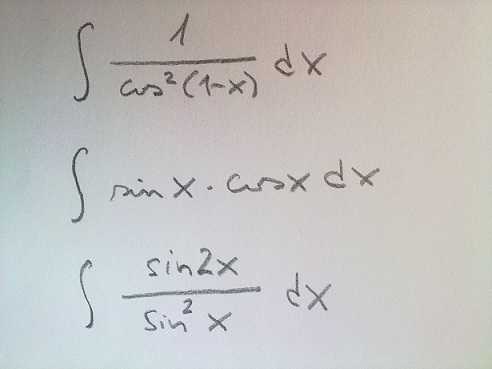 ∫ 1/cos²(1-x) dx
∫ sin x · cos x dx
∫ sin2x/sin² x dx